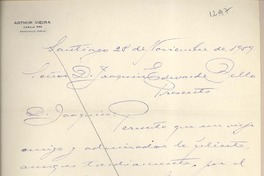 1247
ARTHUR VIEIRA
Santiago 28 de Noviembre de 1959
Señor D. Joaquin Edwards Bello
Presente
D. Joaquin:
Permita que un viejo
amigo y admirador le felicite,
aunque tardiamente, por el